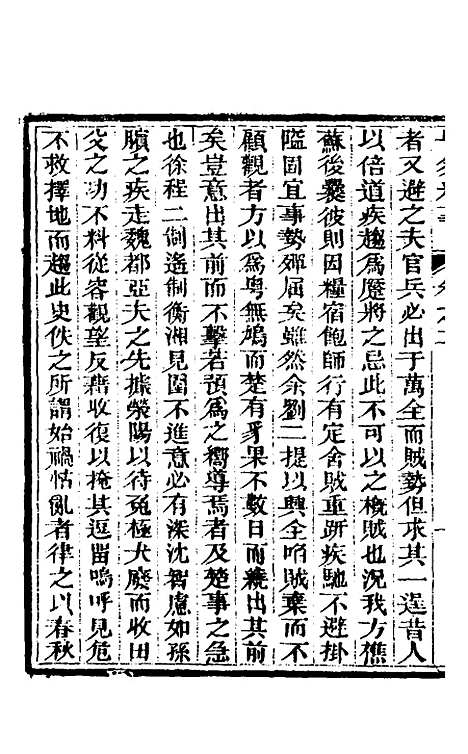 者又避之夫官兵必出于萬全而賊勢但求其一逞昔人
以倍道疾趨為蹷將之忌此不可以之槪賊也況我方樵
蘇後爨彼則因糧宿飽師行有定舍賊重趼疾馳不避掛
隘固宜事勢殫屈矣雖然余劉二提以興全啗賊棄而不
顧觀者方以為粵無鳩而楚有豸果不數日而竟出其前
矣豈意出其前而不擊若預為之嚮導焉者及楚事之急
也徐程二制遙制衡湘見圍不進意必有深沈智慮如孫
臏之疾走魏都亞夫之先據滎陽以待兔極犬廢而收田
父之功不料從容觀望反藉收復以掩其逗留嗚呼見危
不救擇地而趨此史佚之所謂始禍怙亂者律之以春秋